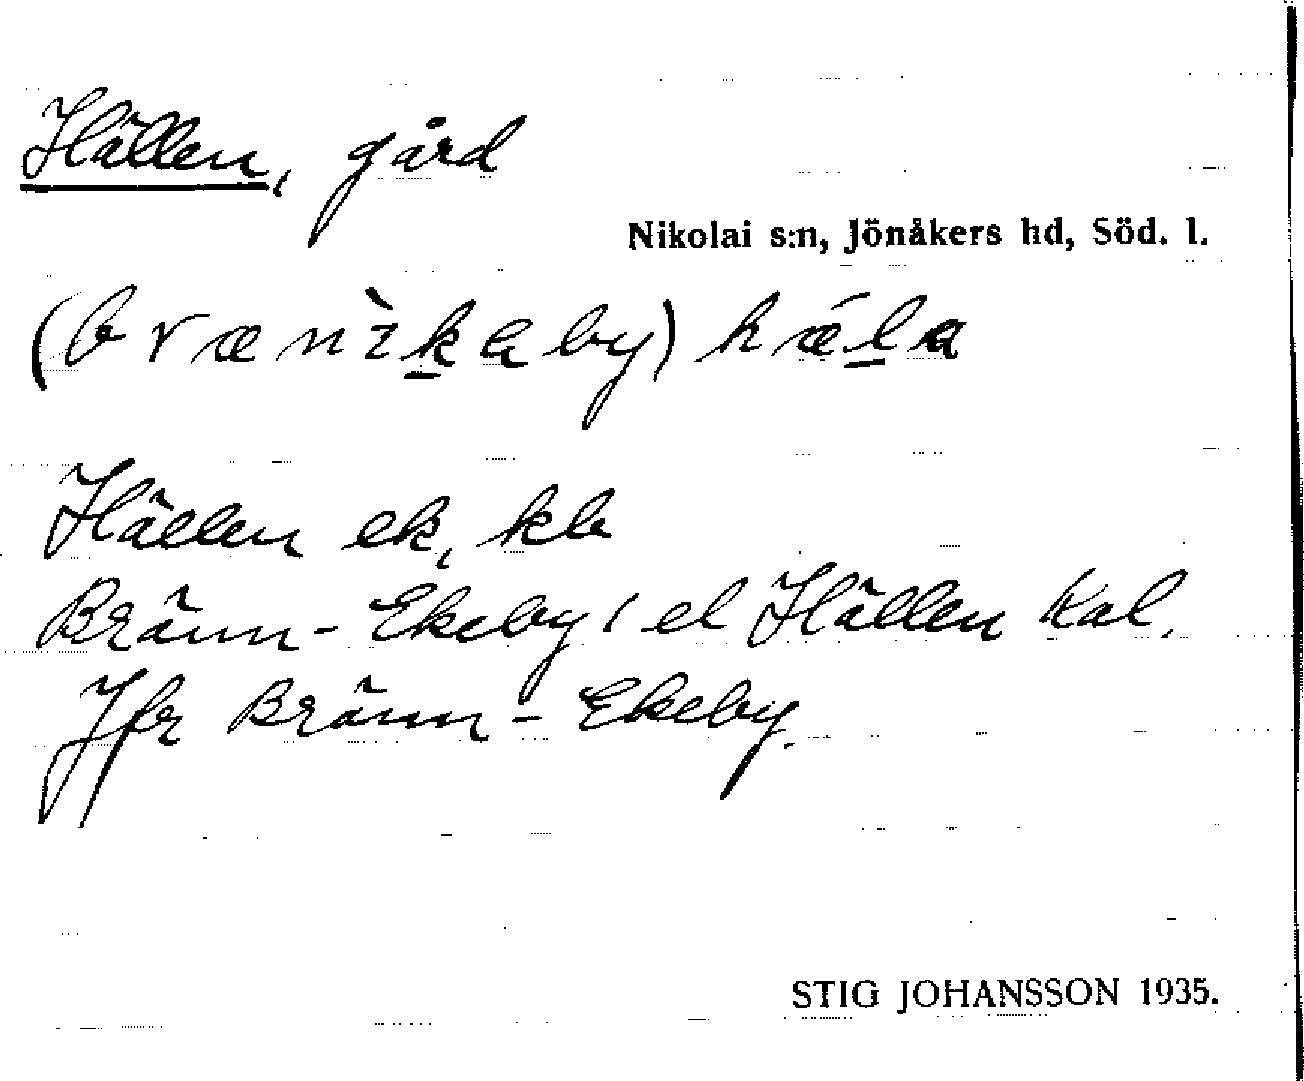 Hällen, gård
Nikolai s:n, Jönåkers hd, Söd. l.
(brænìkaby) hǽla
Hällen ek, kb
Bränn-Ekeby / el Hällen Kal.
Jfr Bränn-Ekeby.
STIG JOHANSSON 1935.